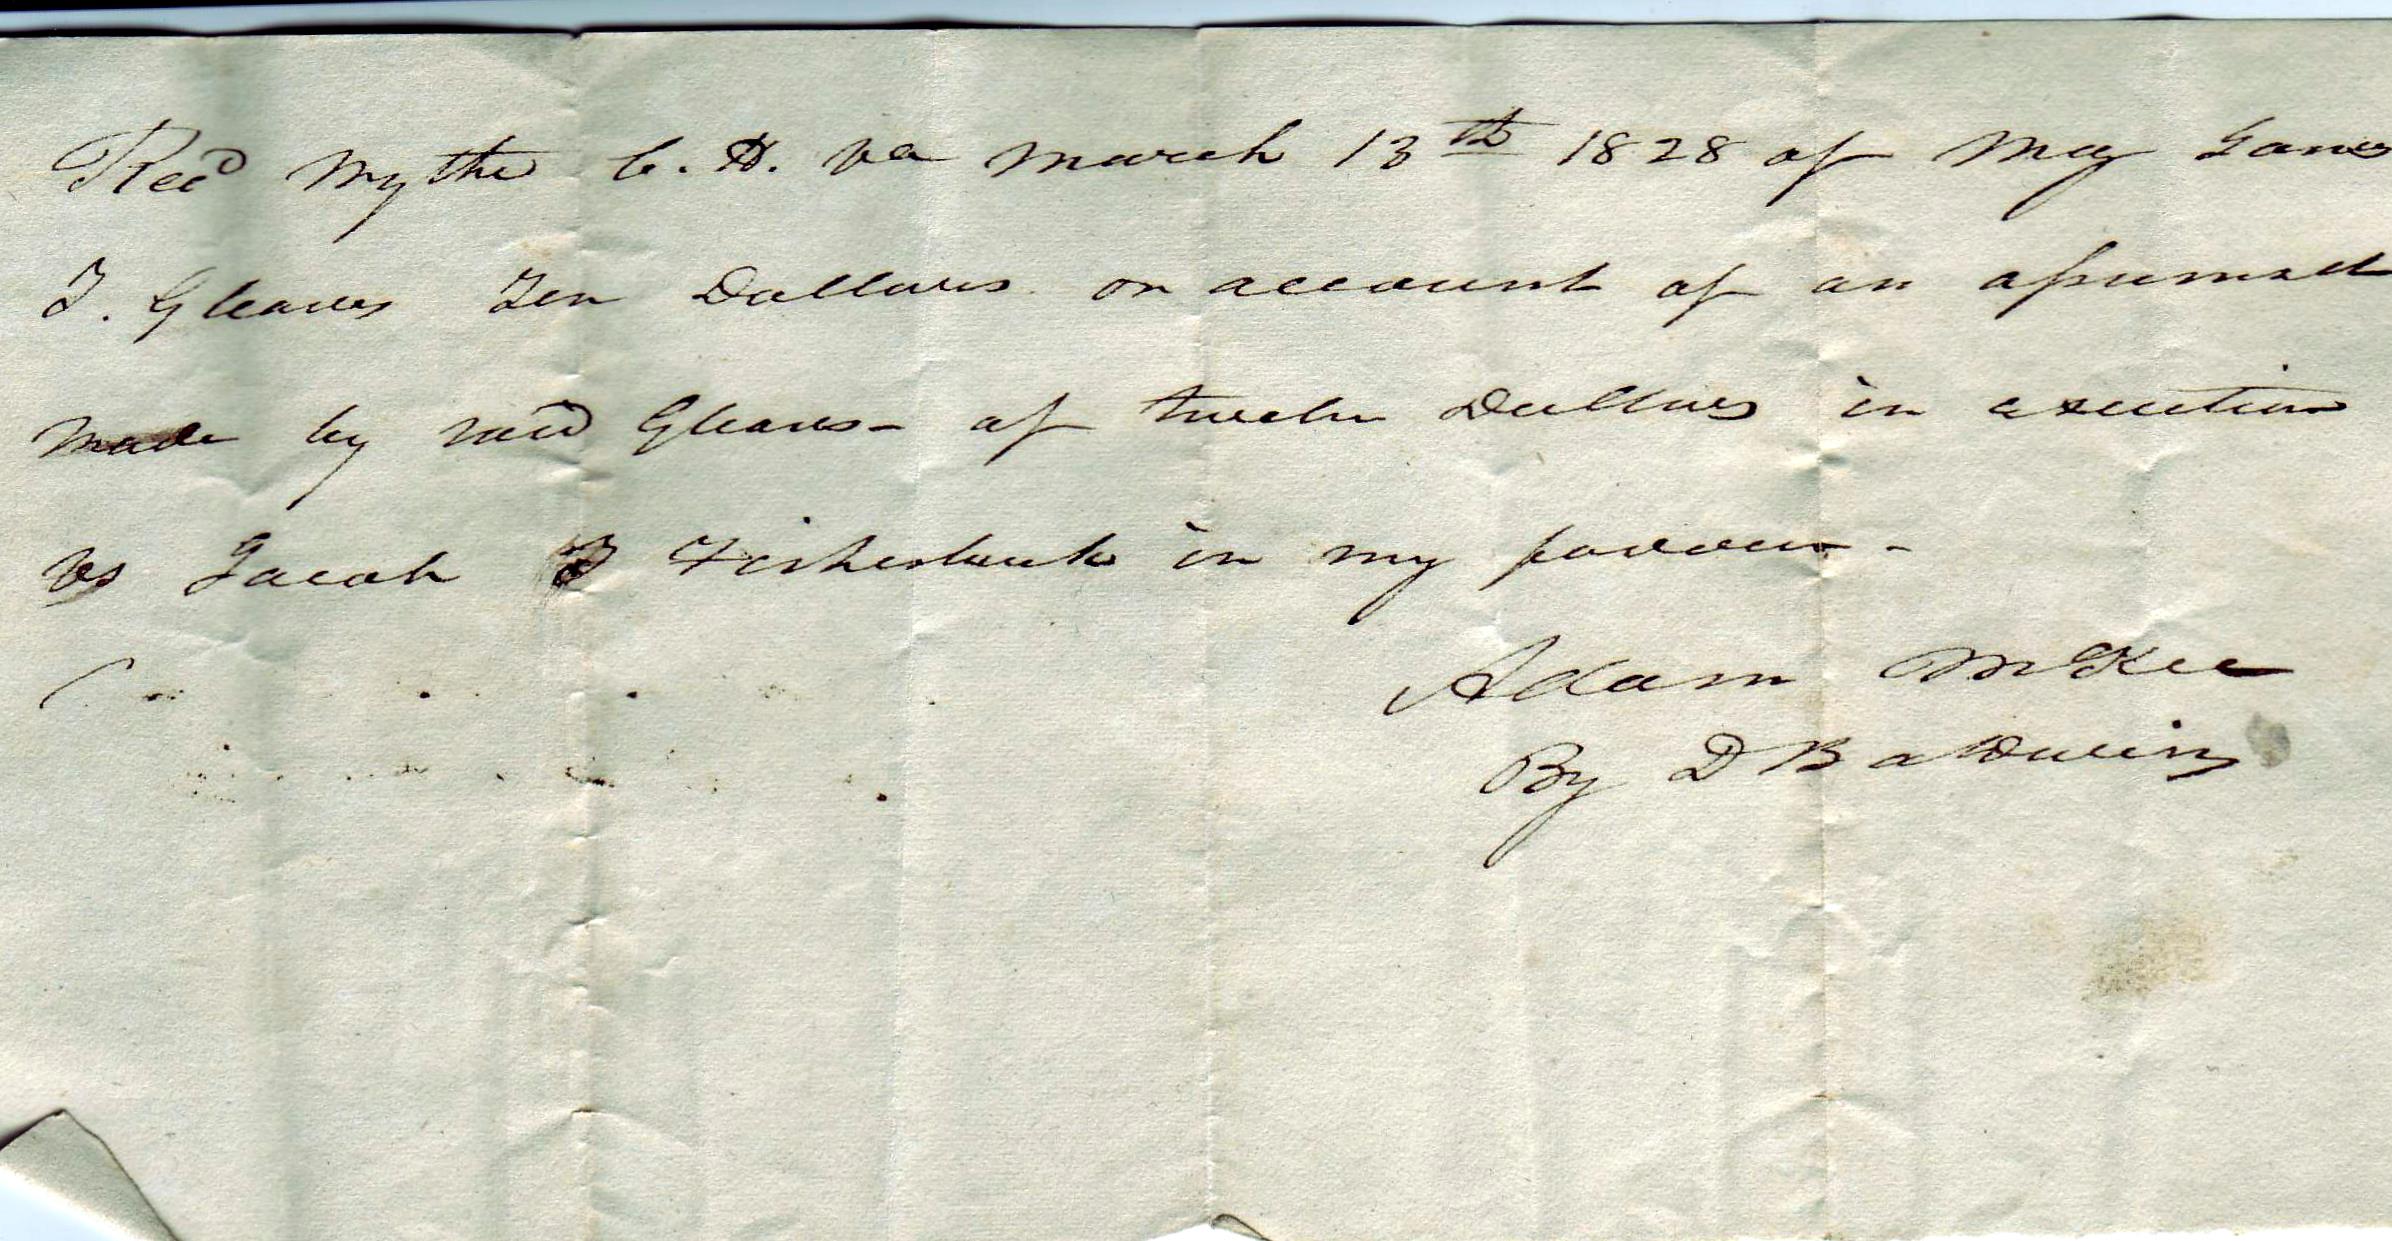 Recd Wythe C. H. Va March 13th 1828 of Maj James
T. Gleaves Ten Dollars on account of an assumsit
made by said Gleaves - of twelve Dollars in execution
vs Jacob Fishersbuck in my favour -
Adam McKee
By D Baldwin